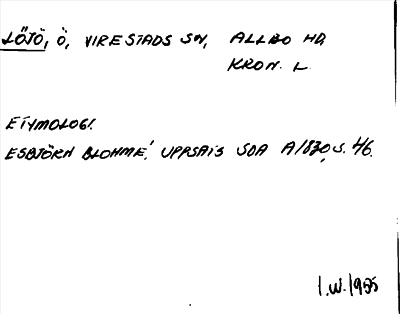 LÖJÖ, Ö, VIRESTADS SN, ALLBO HD
KRON. L.
ETYMOLOGI.
ESBJÖRN BLOHMÉ, UPPSATS SOA A1830, S. 46.
I.W. 1955